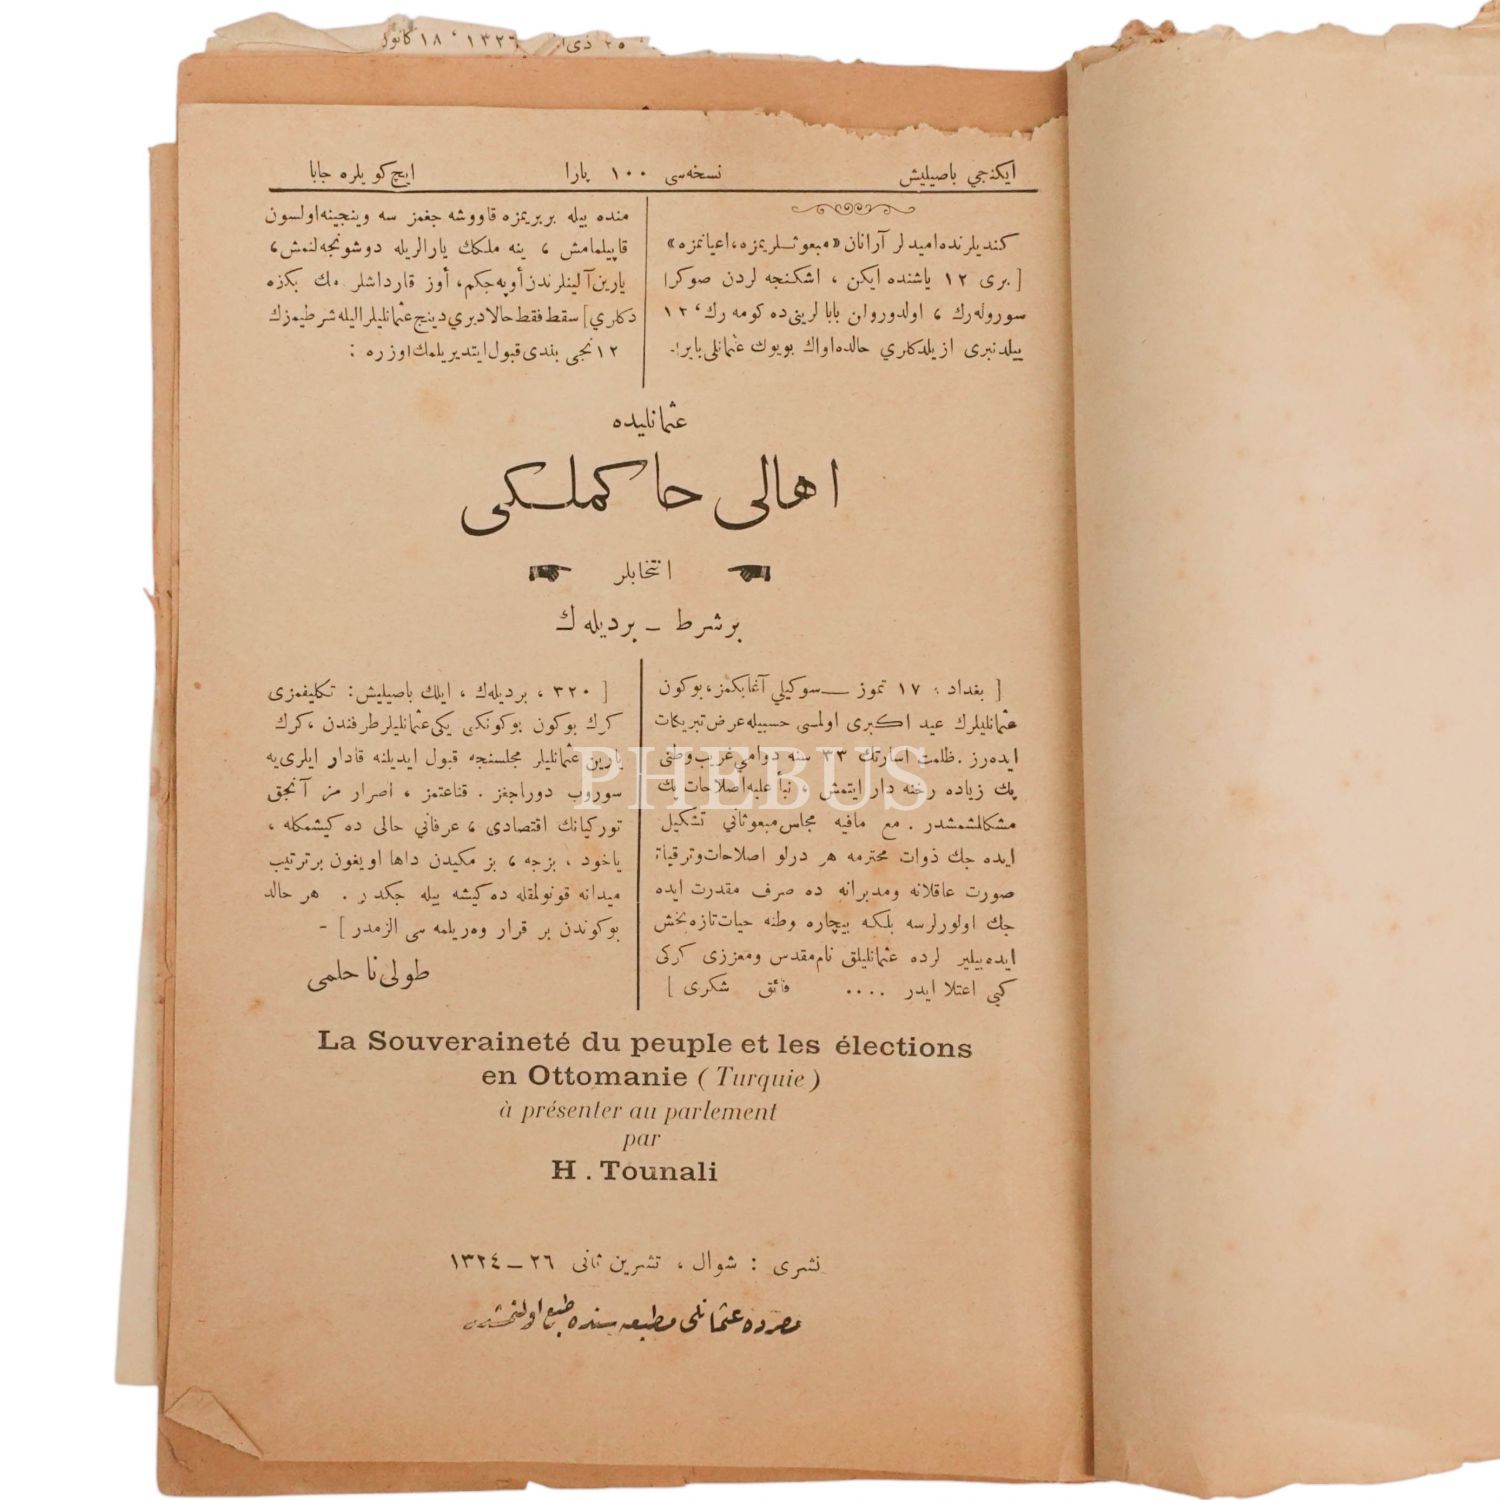 ٢٥ ذی ١٣٢٦ ، ١٨ كانون
ایكنجی باصیلیش نسخه‌سی ١٠٠ پارا ایچ كویلره جابا
كندیلرنده امیدلر آرانان «مبعوثلریمزه، اعیانمزه»
[ بری ١٢ یاشنده ایكن ، اشكنجه لردن صوكرا
سوروله‌رك ، اولدوروان بابا لرینی ده كومه رك، ١٢
ییلدنبری ازیلدكلری حالده اواك بویوك عثمانلی بایرا-
منده بیله بربریمزه قاووشه جغمز سه وینجینه اولسون
قاپیلمامش ، ینه ملكك یارالریله دوشونجه‌لنمش،
یارین آلینلرندن أوپه‌جكم، أوز قارداشلر مك بكزه
دكلری] سقط فقط حالا دیری دینج عثمانلیلر الیله شرطیمزك
١٢ نجی بندی قبول ایتدیریلمك اوزره :
عثمانلیده
اهالی حاكملكی
انتخابلر
بر شرط – بر دیله ك
[ بغداد : ١٧ تموز — سوكیلی آغابكمز، بوكون
عثمانلیلرك عید اكبری اولمسی حسبیله عرض تبریكات
ایده‌رز . ظلمت اسارتك ٣٣ سنه دوامی غریب وطنی
پك زیاده رخنه دار ایتمش ، بناً علیه اصلاحات پك
مشكللشمشدر . مع مافیه مجلس مبعوثانی تشكیل
ایده جك ذوات محترمه هر درلو اصلاحات و ترقیاة
صورت عاقلانه ومدبرانه ده صرف مقدرت ایده
جك اولورلرسه بلكه بیچاره وطنه حیات تازه بخش
ایده بیلیر لرده عثمانلیلق نام مقدس ومعززی كركی
كبی اعتلا ایدر .... فائق شكری ]
[ ٣٢٠ ، بر دیله ك ، ایلك باصیلیش : تكلیفمزی
كرك بوكون بوكونكی یكی عثمانلیلر طرفندن ، كرك
یارین عثمانلیلر مجلسنجه قبول ایدیلنه قادار ایلری یه
سوروب دوراجغز . قناعتمز ، اصرار مز آنجق
توركیانك اقتصادی ، عرفانی حالی ده كیشمكله ،
یاخود ، بزجه ، بز مكیدن داها اویغون بر ترتیب
میدانه قونولمقله ده كیشه بیله جكدر . هر حالد
بوكوندن بر قرار ویریلمه سی الزمدر ] -
طولی نا حلمی
La Souveraineté du peuple et les élections
en Ottomanie ( Turquie )
à présenter au parlement
par
H . Tounali
نشری : شوال ، تشرین ثانی ٢٦ – ١٣٢٤
مصرده عثمانلی مطبعه سنده طبع اولنمشدر
PHEBUS